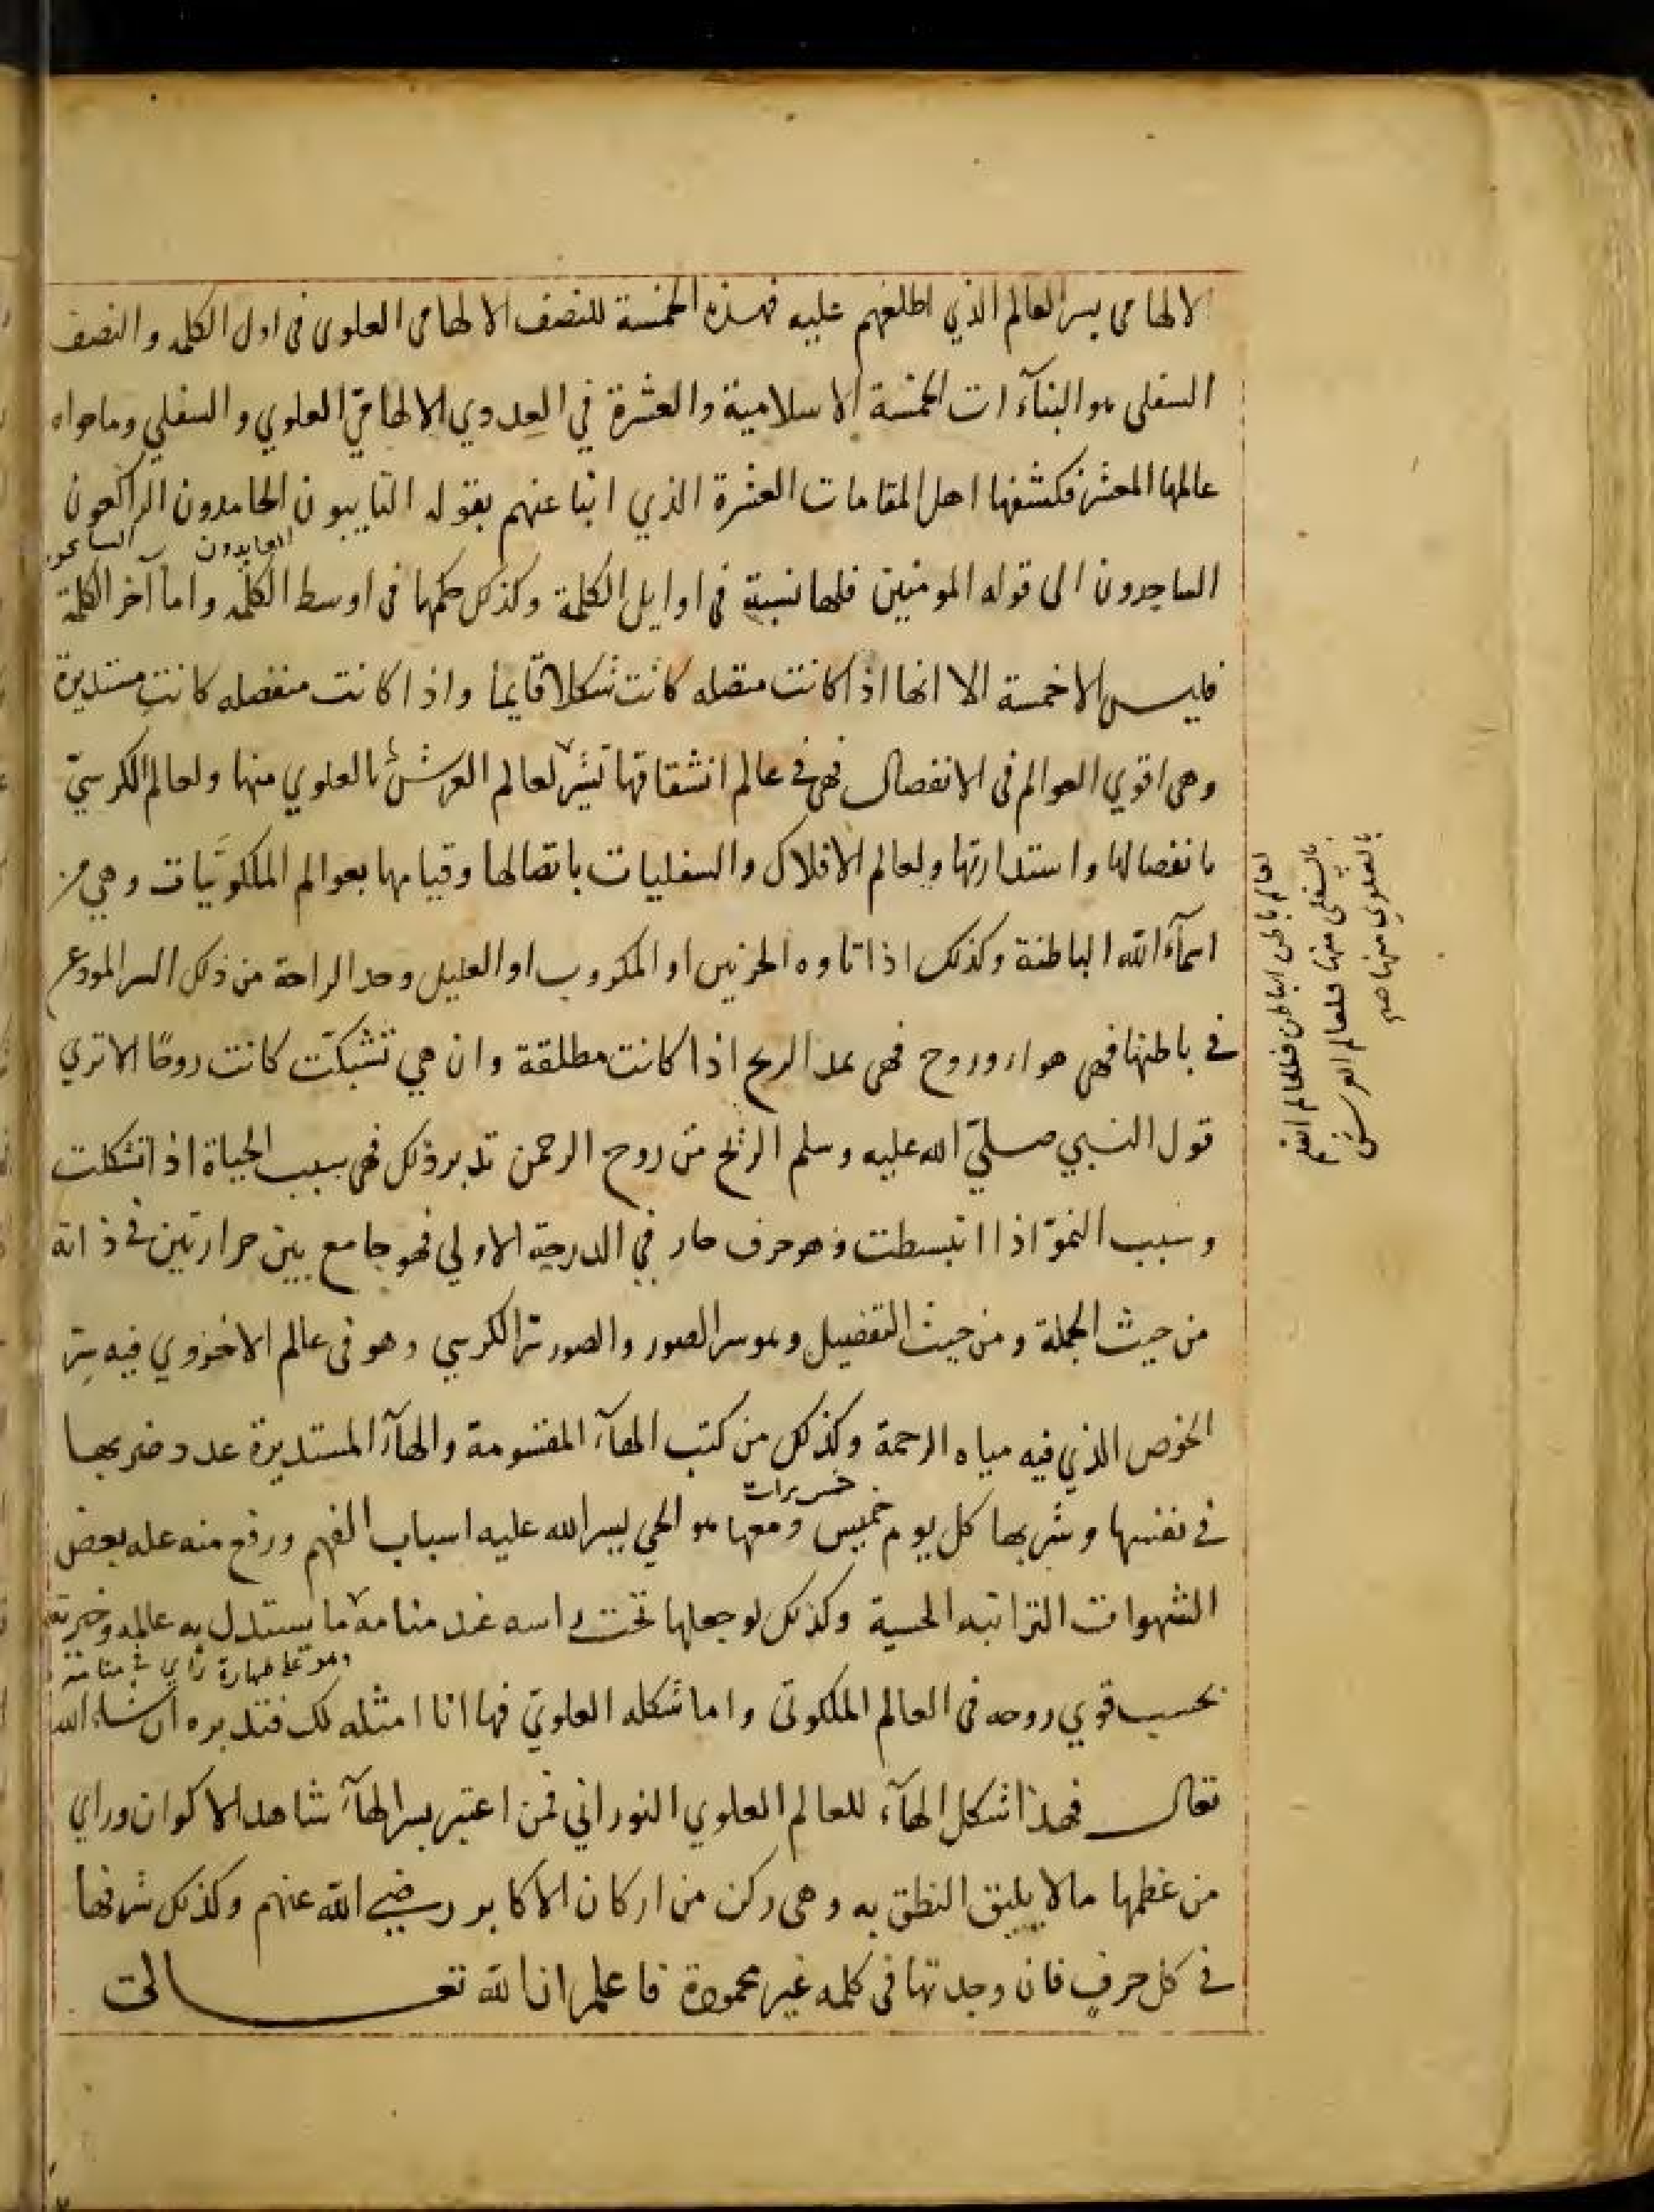 الالهامى بسر العالم الذي اطلعهم عليه فهذه الخمسة للنصف الالهامى العلوى فى اول الكلمه والنصف
السفلى هو البنآءات الخمسة الاسلامية والعشرة في العددي الالهامّي العلوي والسفلي وما حواه
عالمها المعشر فكشفها اهل المقامات العشرة الذي انبا عنهم بقوله التايبون الحامدون الراكعون
العابدون السايحون
الساجدون الى قوله المومنين فلها نسبة فى اوايل الكلمة وكذلك حكمها فى اوسط الكلمه واما آخر الكلمة
فليس الا خمسة الا انها اذا كانت متصله كانت شكلا قايما واذا كانت منفصله كانت مستديرة
وهى اقوي العوالم فى الانفصال فهى فى عالم انشقاقها تشير لعالم العرش بالعلوي منها ولعالم الكرسيّ
بانفصالها واستدارتها ولعالم الافلاك والسفليات باتصالها وقيامها بعوالم الملكوتيات وهي من
اسمآء الله الباطنة وكذلك اذا تاوه الحزين او المكروب او العليل وجد الراحة من ذلك السر المودع
فى باطنها فهى هواء وروح فهى عد الريح اذا كانت مطلقة وان هي تشبكت كانت روحًا الا تري
قول النبي صلى الله عليه وسلم الريح من روح الرحمن تدبر ذلك فهى سبب الحياة اذا تشكلت
وسبب النموّ اذا انبسطت وهو حرف حار في الدرجة الاولي فهو جامع بين حرارتين فى ذاته
من حيث الجملة ومن حيث التفصيل وهو سر الصور والصور سر الكرسي وهو فى عالم الاخروي فيه سِر
الحوض الذي فيه مياه الرحمة وكذلك من كتب الهآء المقسومة والهآء المستديرة عدد ضربها
فى نفسها وشربها كل يوم خميس خمس مرات ومعها هو الحي يسر الله عليه اسباب الفهم ورفع منه عله بعض
الشهوات الترابيه الحسية وكذلك لو جعلها تحت راسه عند منامه ما يستدل به عالمه وخبرته
وهو على طهارة راي فى منامه
بحسب قوي روحه فى العالم الملكوتى واما شكله العلويّ فها انا امثله لك فتدبره ان شاء الله
تعالى فهذا شكل الهآء للعالم العلوي النوراني فمن اعتبر بسر الهآء شاهد الاكوان وراي
من عظمها ما لا يليق النطق به وهى ركن من اركان الاكابر رضي الله عنهم وكذلك شرفها
فى كل حرفٍ فان وجدتها فى كلمه غير محمودة فاعلم ان الله تعـالى
لعالم باطن الباطن فلعالم
بالسفلى منها فلعالم العرش
بالعلوي منها صح